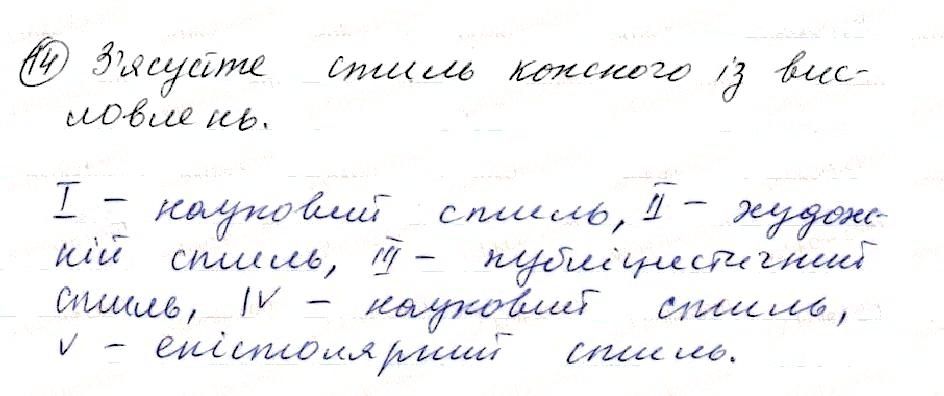 14 З'ясуйте стиль кожного із вис-
ловлень.
I – науковий стиль, II – худож-
ній стиль, III – публіцистичний
стиль, IV – науковий стиль,
V – епістолярний стиль.